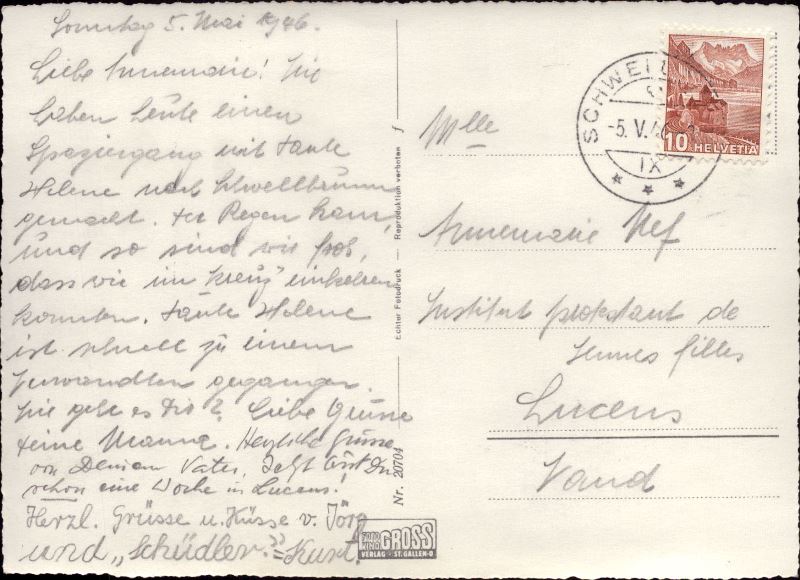 Sonntag 5. Mai 1946.
Liebe Annemarie! Wir
haben heute einen
Spaziergang mit Tante
Helene nach Schwellbrunn
gemacht. Der Regen kam,
und so sind wir froh,
dass wir im "Kreuz" einkehren
konnten. Tante Helene
ist schnell zu einem
Verwandten gegangen.
Wie geht es Dir? Liebe Grüsse
Deine Mamma. Herzliche Grüsse
von Deinem Vater. Jetzt bist Du
schon eine Woche in Lucens!
Herzl. Grüsse u. Küsse v. Jörg
und „Schüdler?" = Kurt.
Echter Fotodruck — Reproduktion verboten
Nr. 20704
FOTO
GROSS
VERLAG · ST. GALLEN-O
SCHWELL
-5. V. 46
IX
10 HELVETIA
Mlle
Annemarie Nef
Institut protestant de
Jeunes filles
Lucens
Vaud